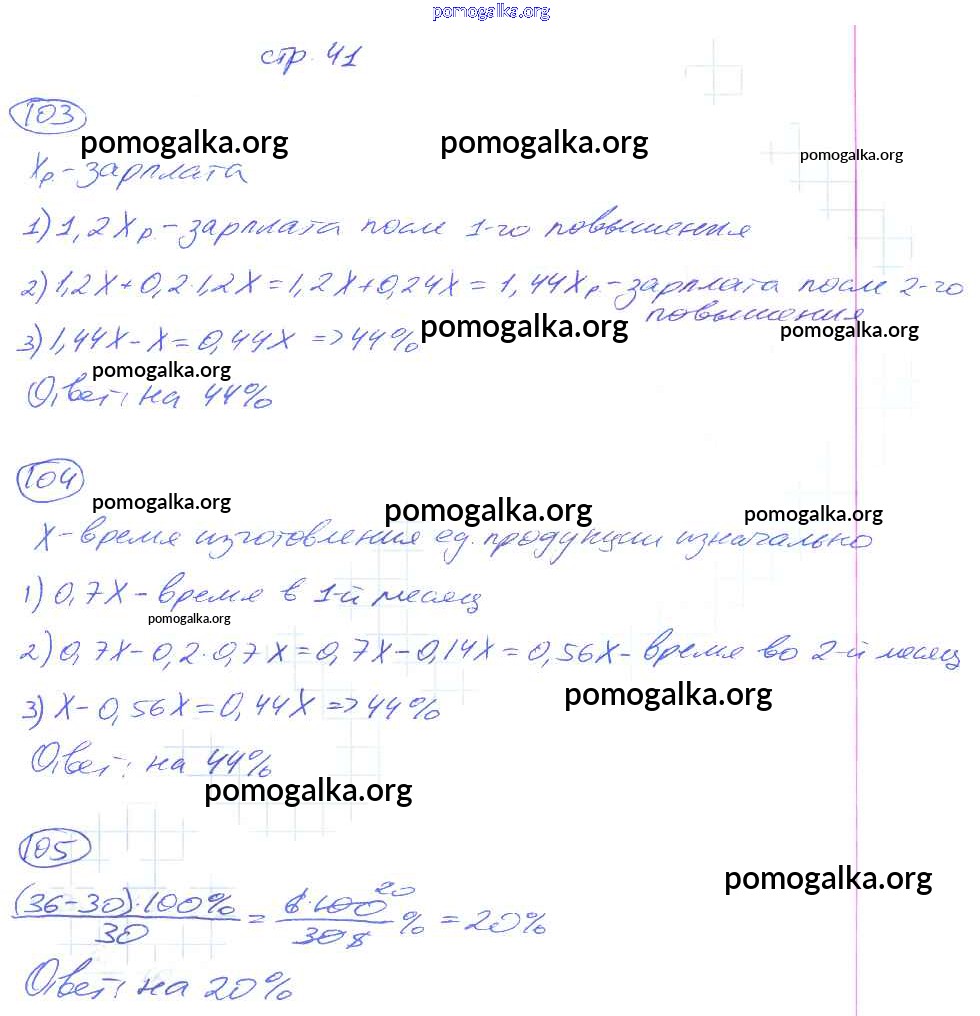 pomogalka.org
стр. 41
103
pomogalka.org pomogalka.org pomogalka.org
Xр. - зарплата
1) 1,2Xр. - зарплата после 1-го повышения
2) 1,2X + 0,2·1,2X = 1,2X + 0,24X = 1,44Xр - зарплата после 2-го
повышения
pomogalka.org pomogalka.org
3) 1,44X - X = 0,44X => 44%
pomogalka.org
Ответ: на 44%
104
pomogalka.org pomogalka.org pomogalka.org
X - время изготовления ед. продукции изначально
1) 0,7X - время в 1-й месяц
pomogalka.org
2) 0,7X - 0,2·0,7X = 0,7X - 0,14X = 0,56X - время во 2-й месяц
pomogalka.org
3) X - 0,56X = 0,44X => 44%
Ответ: на 44%
pomogalka.org
105
pomogalka.org
(36-30)·100% / 30 = 6·100 20 / 30 5 % = 20%
Ответ: на 20%